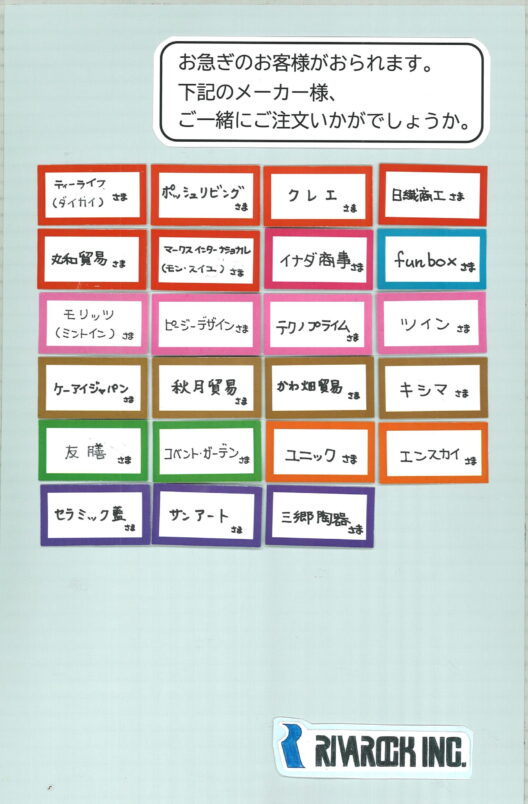 お急ぎのお客様がおられます。
下記のメーカー様、
ご一緒にご注文いかがでしょうか。
ティーライフ
(ダイカイ) さま
ポッシュリビング
さま
クレエ
さま
日繊商工 さま
丸和貿易 さま
マークスインターナショナル
(モン・スイユ) さま
イナダ商事 さま
funbox さま
モリッツ
(ミントイン) さま
ピージーデザイン さま
テクノプライム さま
ツイン さま
ケーアイジャパン
さま
秋月貿易
さま
かわ畑貿易
さま
キシマ さま
友膳 さま
コベント・ガーデン
さま
ユニック さま
エンスカイ さま
セラミック藍
さま
サンアート
さま
三郷陶器
さま
RIVAROCK INC.